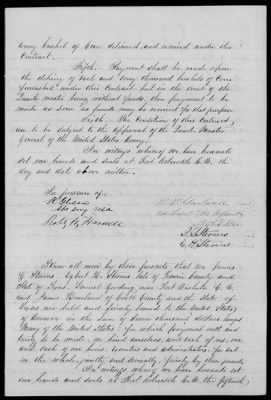 every bushel of Corn delivered and received under this
Contract.
Fifth. Payment shall be made upon
the delivery of each and every thousand bushels of Corn
furnished under this Contract, but in the event of the
Quarter Master being without funds, then payment to be
made as soon as funds may be received for that purpose.
Sixth. The Conditions of this Contract
are to be subject to the approval of the Quarter Master
General of the United States Army.
In witness whereof we have hereunto
set our hands and seals at Fort
day and date above written.
In presence of
Stevens
E. H. Stevens
Know all men by these presents that we James
G. Stevens, H. Stevens late of County and
State of Texas, Samuel
and James of County and the State of
Texas are held and firmly bound to the United States
of America in the Sum of Seven thousand dollars
Money of the United States: for which payment well and
truly to be made, we bind ourselves, and each of us, our
and each of our heirs, executors and administrators, for and
in the whole, jointly and severally, firmly by these presents.
In witness whereof we have hereunto set
our hands and seals at Fort the fifteenth